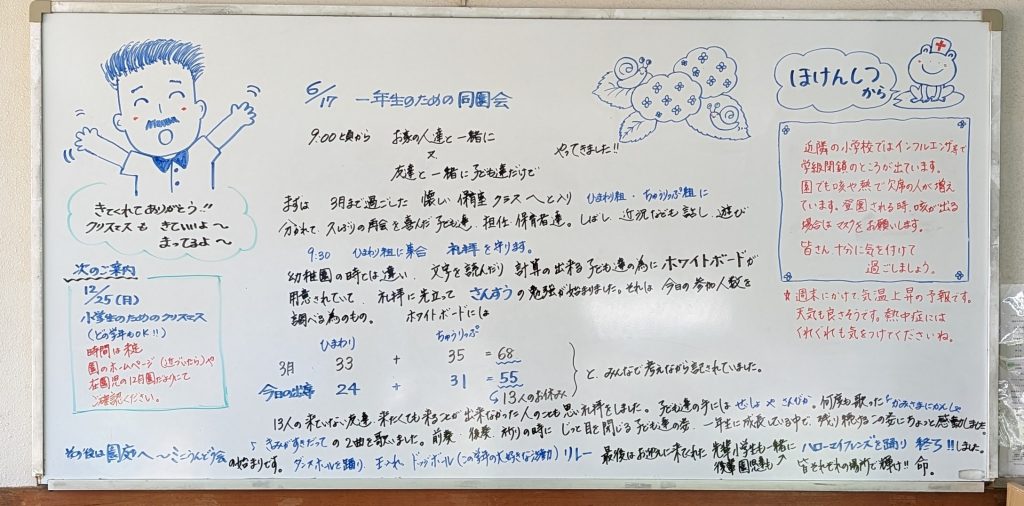 6/17 一年生のための同園会
9:00頃から お家の人達と一緒に
又
友達と一緒に子ども達だけで
やってきました!!
まずは 3月まで過ごした 懐しい保育室 クラスへと入り ひまわり組・ちゅうりっぷ組に
分かれて 久しぶりの再会を喜んだ子ども達、担任・保育者達。しばし、近況などを話し、遊び
9:30 ひまわり組に集合 礼拝を守ります。
幼稚園の時とは違い、文字を読んだり 計算の出来る子ども達の為に ホワイトボードが
用意されていて、礼拝に先立って さんすうの勉強が始まりました。それは 今日の参加人数を
調べる為のもの。 ホワイトボードには
ひまわり ちゅうりっぷ
3月 33 + 35 = 68
今日の出席 24 + 31 = 55
↳13人のお休み
と、みんなで考えながら記されていました。
13人の来ていない友達、来たくても来ることが出来なかった人のことも思い礼拝をしました。子ども達の手には せいしょ や さんびか。何度も歌った「かみさまにかんしゃ」
「きみがすきだって」の2曲を歌いました。前奏 後奏 祈りの時に じっと目を閉じる子ども達の姿、一年生に成長している中で、残り続けるこの姿にちょっと感動しました。
その後は園庭へ〜ミニうんどう会の始まりです。ダンスホールを踊り、玉入れ、ドッヂボール(この学年の大好きな活動) リレー 最後はお迎えに来てくれた 先輩小学生も一緒に ハローマイフレンズを踊り 終了!!しました。
後輩園児達も
皆それぞれの場所で輝け!! 命。
きてくれてありがとう!!
クリスマスも きてい〜よ〜
まってるよ〜
次のご案内
12/25(月)
小学生のためのクリスマス
(どの学年もOK!!)
時間は未定
園のホームページ(近づいたら)や
在園児の12月園だよりにて
ご確認ください。
ほけんしつ
から
近隣の小学校ではインフルエンザ等で
学級閉鎖のところが出ています。
園でも咳や熱で欠席の人が増え
ています。登園される時、咳が出る
場合はマスクをお願いします。
皆さん十分に気を付けて
過ごしましょう。
★週末にかけて気温上昇の予報です。
天気も良さそうです。熱中症には
くれぐれも気をつけてくださいね。